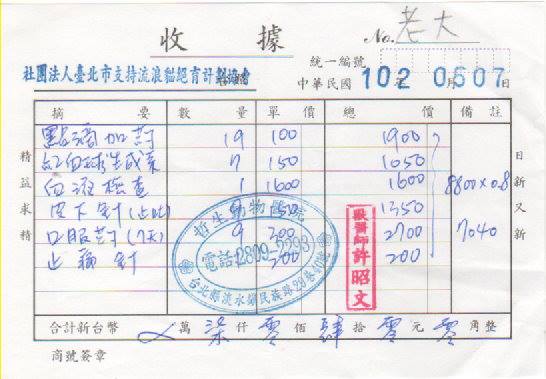 收據
No. 老大
統一編號
社團法人臺北市支持流浪貓絕育計劃協會
中華民國102年0607日
摘要 數量 單價 總價 備註
點滴加葯 19 100 1900
紅血球生成素 7 150 1050
血液檢查 1 1600 1600 8800x0.8
皮下針(止吐) 9 150 1350
口服葯(7天) 9 300 2700 7040
止痛針 1 200 200
精益求精
日新又新
哲生動物醫院
電話:2809-2293
台北縣淡水鎮民族路29巷
獸醫師許昭文
合計新台幣 萬柒仟零佰肆拾零元零角整
商號簽章